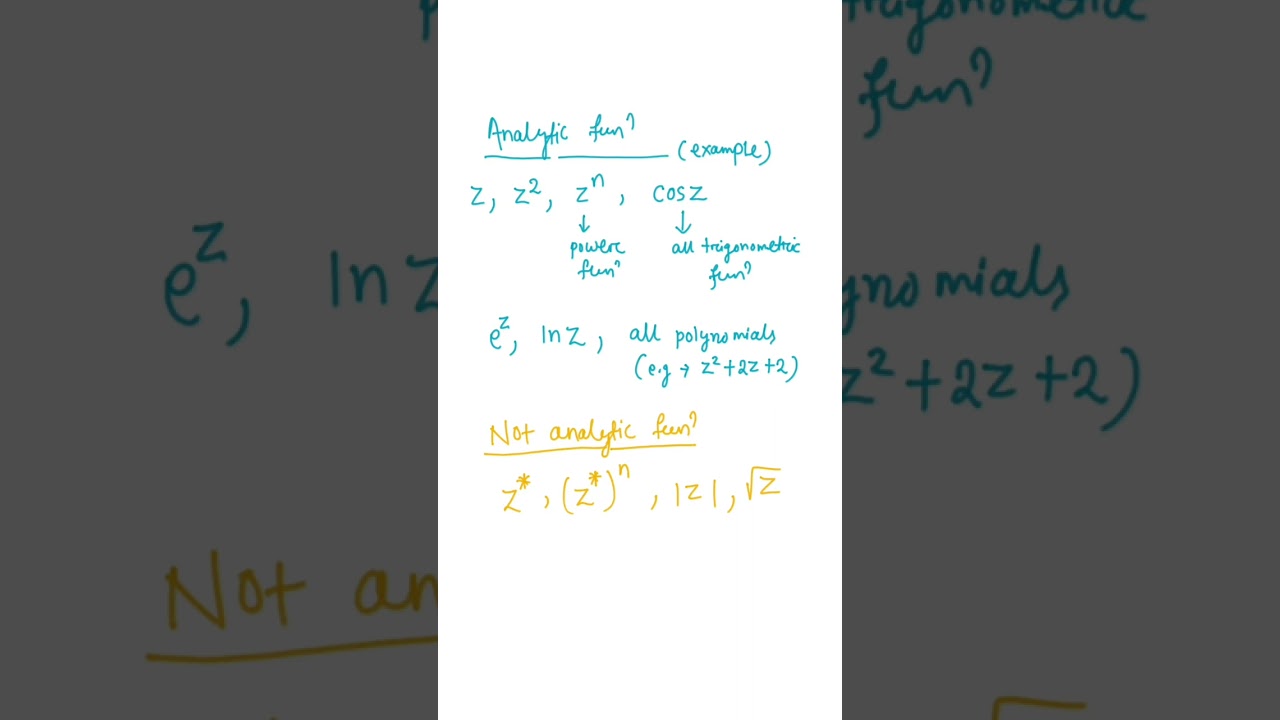 Analytic funⁿ
(example)
z, z², zⁿ, cosz
↓ ↓
power all trigonometric
funⁿ funⁿ
e^z, lnz, all polynomials
(e.g → z²+2z+2)
Not analytic funⁿ
z*, (z*)ⁿ, |z|, √z